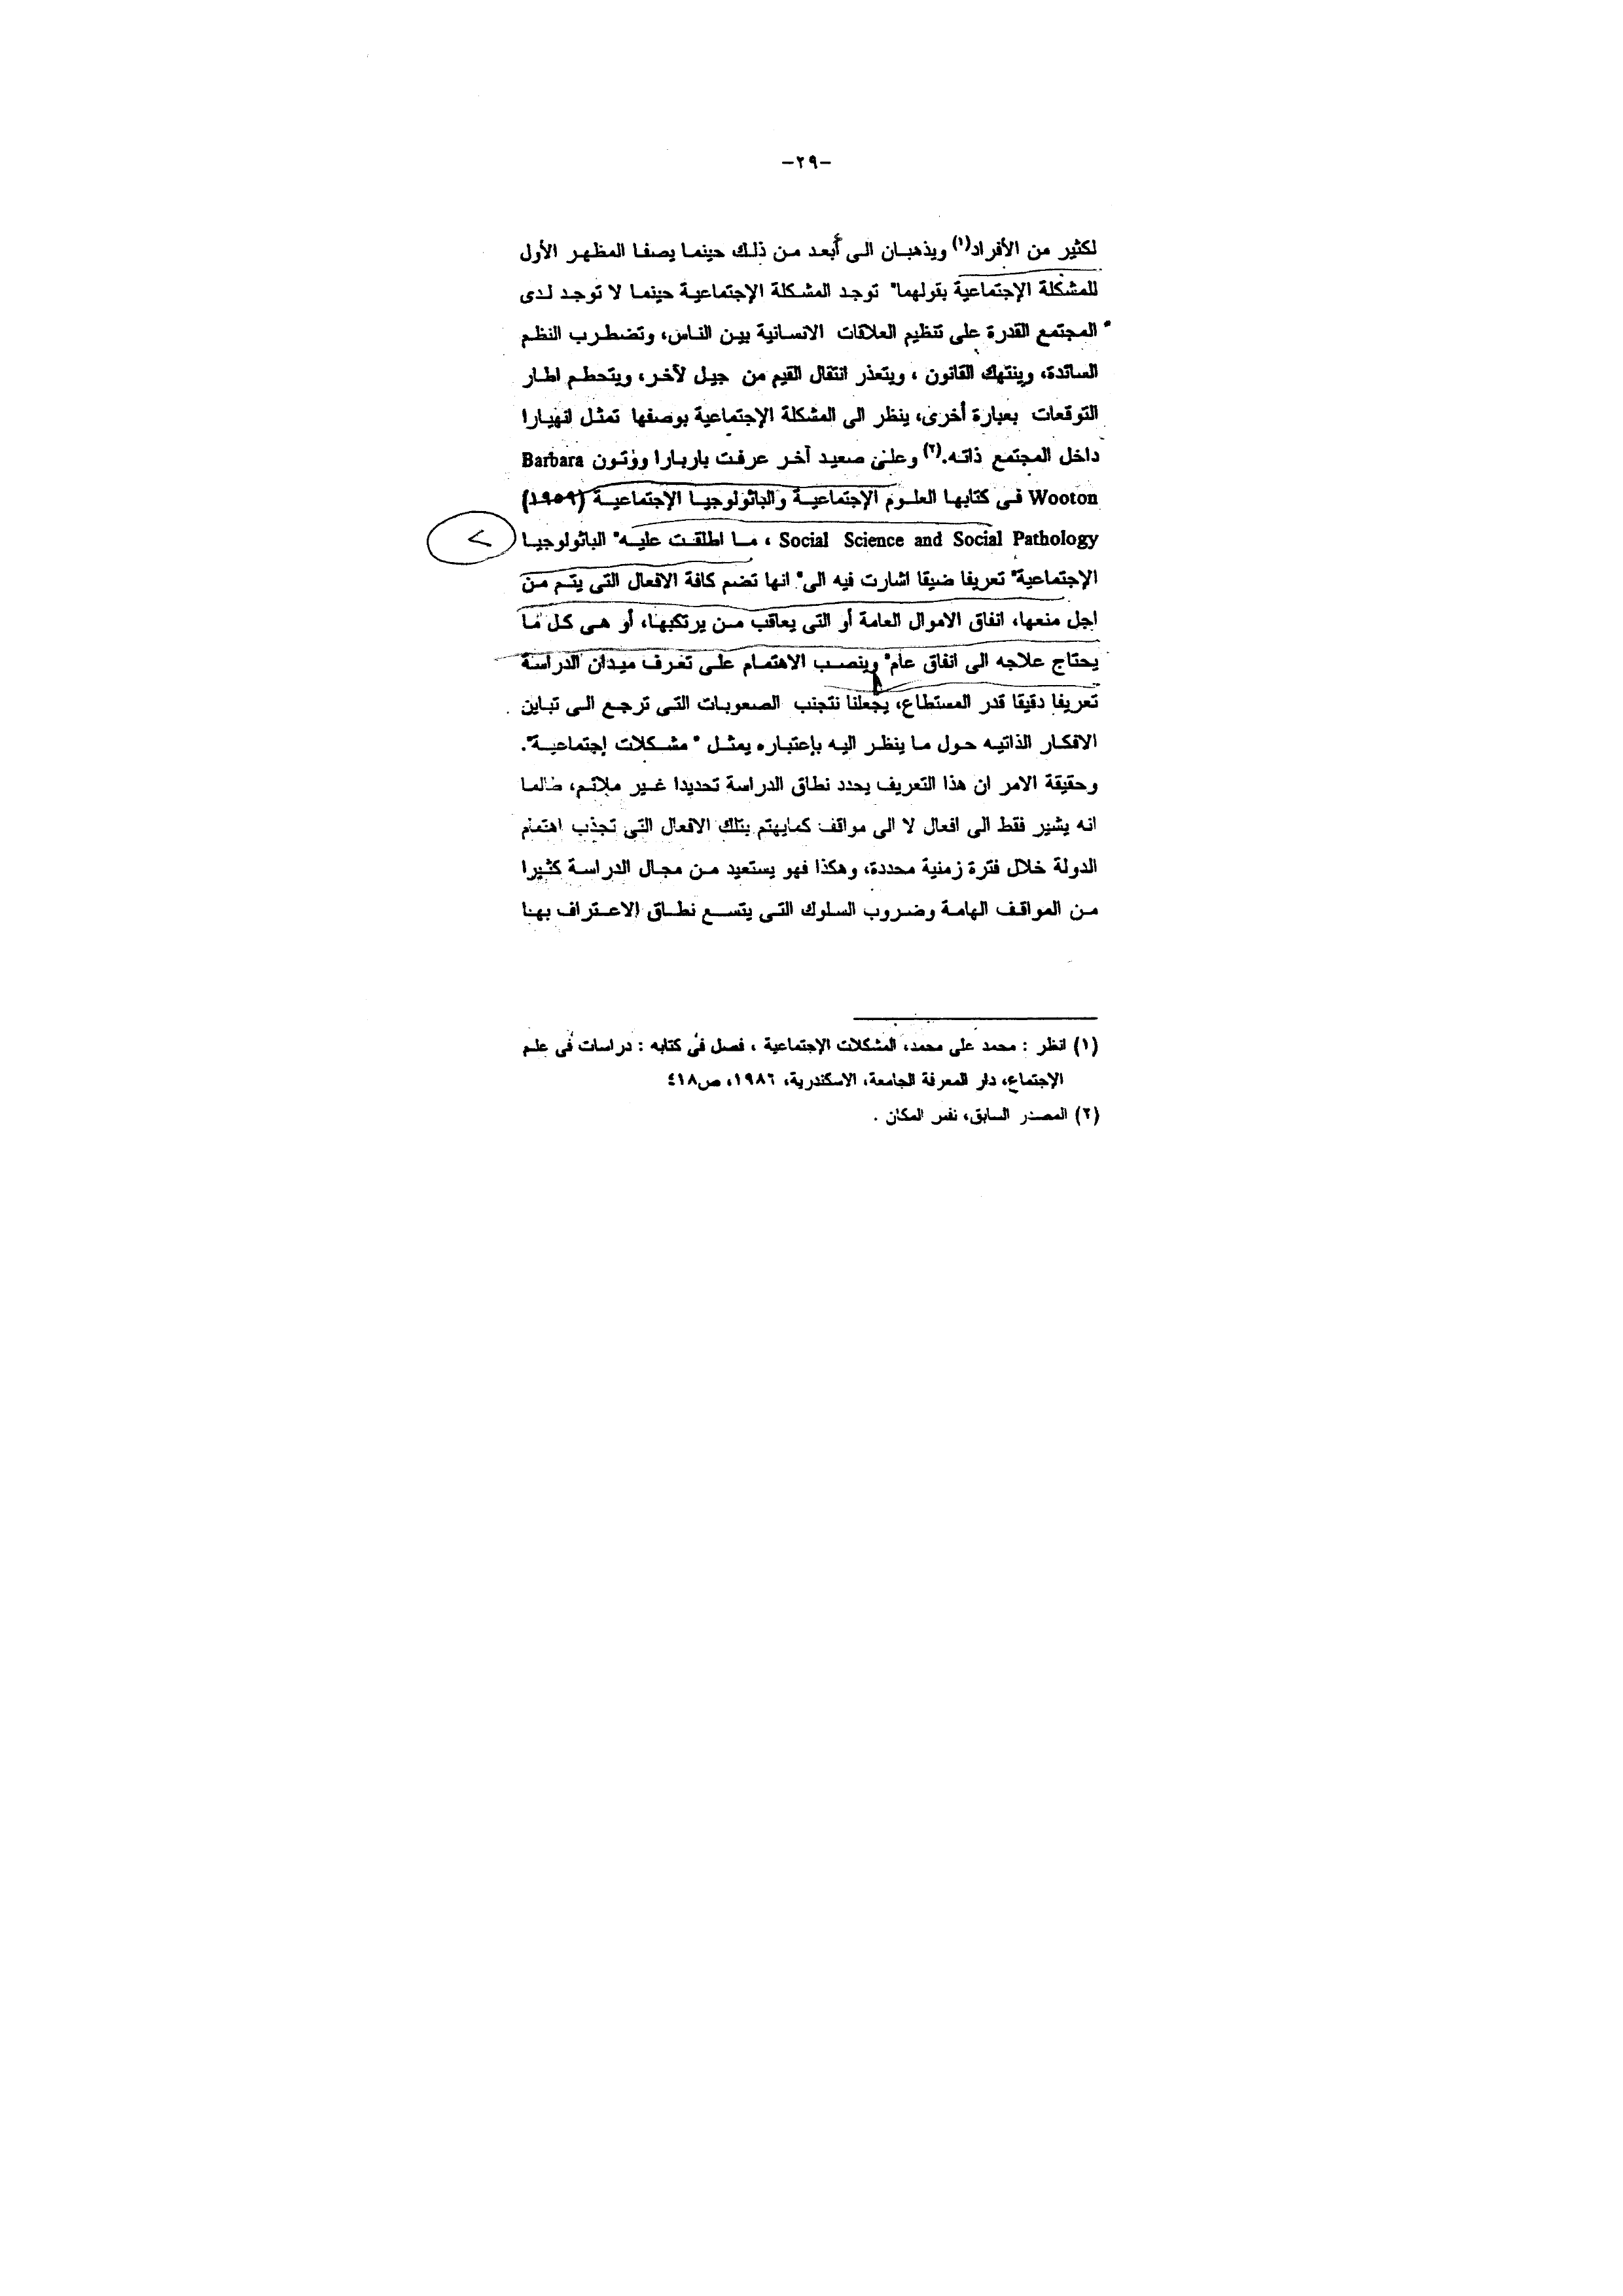 -٢٩-
لكثير من الأفراد(١) ويذهبان الى أبعد من ذلك حينما يصفا المظهر الأول
للمشكلة الإجتماعية بقولهما" توجد المشكلة الإجتماعية حينما لا توجد لدى
المجتمع القدرة على تنظيم العلاقات الانسانية بين الناس، وتضطرب النظم
السائدة، وينتهك القانون ، ويتعذر انتقال القيم من جيل لآخر، ويتحطم اطار
التوقعات بعبارة أخرى، ينظر الى المشكلة الإجتماعية بوصفها تمثل انهيارا
داخل المجتمع ذاته.(٢) وعلى صعيد آخر عرفت باربارا ووتون Barbara
Wooton فى كتابها العلوم الإجتماعية والباثولوجيا الإجتماعية (١٩٥٩)
Social Science and Social Pathology ، ما اطلقت عليه" الباثولوجيا
الإجتماعية" تعريفا ضيقا اشارت فيه الى" انها تضم كافة الافعال التى يتم من
اجل منعها، انفاق الاموال العامة أو التى يعاقب من يرتكبها، أو هى كل ما
يحتاج علاجه الى انفاق عام" وينصب الاهتمام على تعرف ميدان الدراسة
تعريفا دقيقا قدر المستطاع، يجعلنا نتجنب الصعوبات التى ترجع الى تباين
الافكار الذاتيه حول ما ينظر اليه بإعتباره يمثل " مشكلات إجتماعية".
وحقيقة الامر ان هذا التعريف يحدد نطاق الدراسة تحديدا غير ملائم، طالما
انه يشير فقط الى افعال لا الى مواقف كمايهتم بتلك الافعال التى تجذب اهتمام
الدولة خلال فترة زمنية محددة، وهكذا فهو يستعيد من مجال الدراسة كثيرا
من المواقف الهامة وضروب السلوك التى يتسع نطاق الاعتراف بها
(١) انظر : محمد على محمد، المشكلات الإجتماعية ، فصل فى كتابه : دراسات فى علم
الإجتماع، دار المعرفة الجامعة، الاسكندرية، ١٩٨٦، ص٤١٨
(٢) المصدر السابق، نفس المكان .